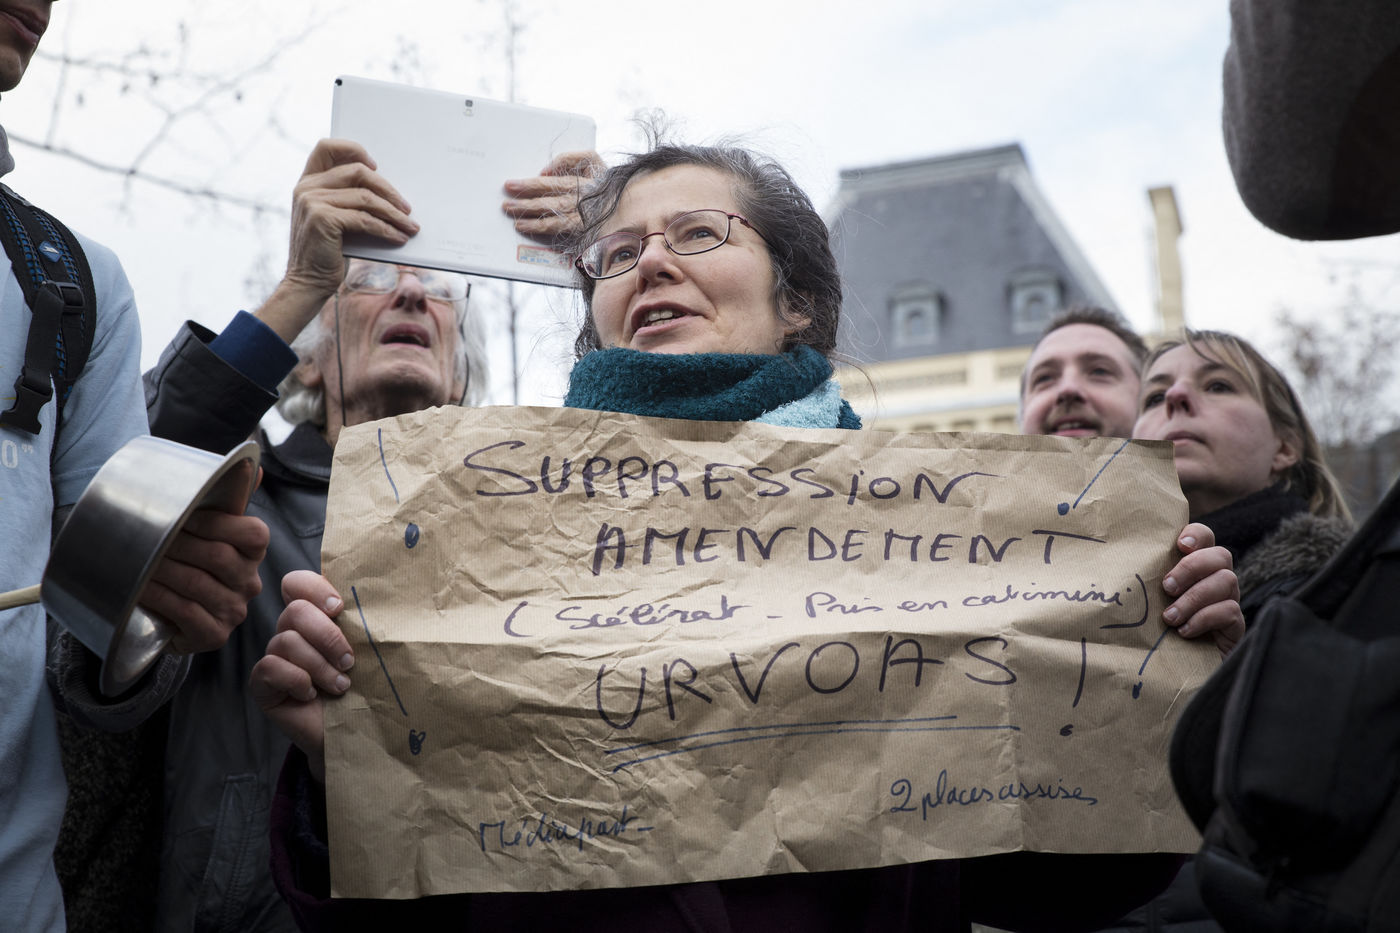 SAMSUNG
! SUPPRESSION !
AMENDEMENT
(Scélérat - Pris en catimini)
! URVOAS ! !
2 places assises
Médiapart -